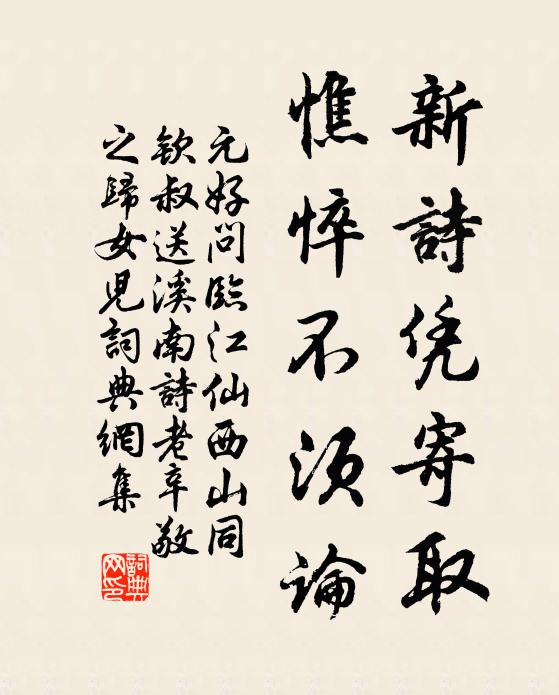 新詩凭寄取
憔悴不須論
元好问臨江仙西山同
欽叔送溪南詩老辛敬
之歸女兒詞典網集
詞典
网印